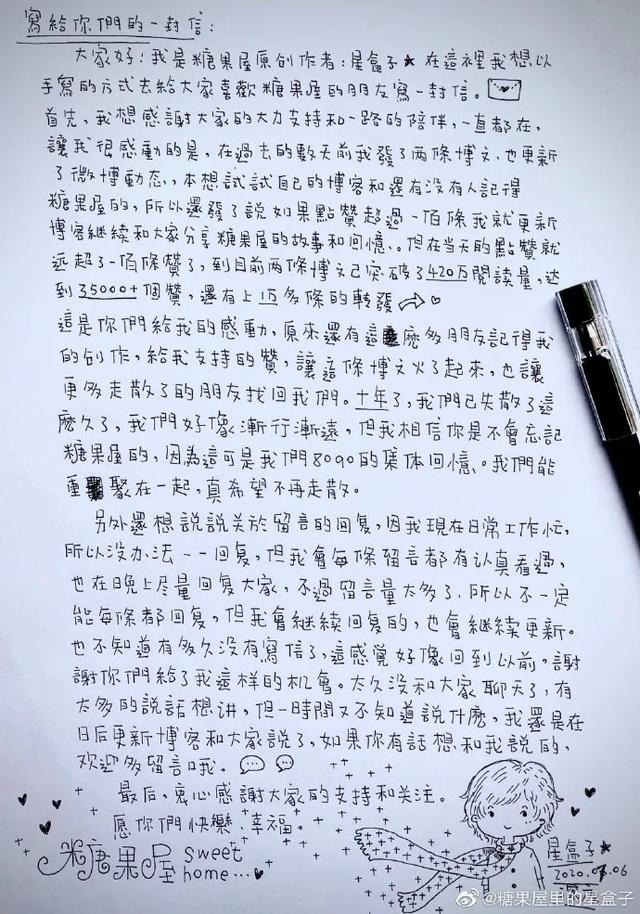 寫給你們的一封信：
大家好！我是糖果屋原創作者：星盒子★在這裡我想以
手寫的方式去給大家喜歡糖果屋的朋友寫一封信。
首先，我想感謝大家的大力支持和一路的陪伴，一直都在，
讓我很感動的是，在過去的數天前我發了兩條博文，也更新
了微博動态，本想試試自己的博客和還有没有人記得
糖果屋的，所以還發了說如果點贊超過一佰條我就更新
博客継续和大家分享糖果屋的故事和回憶、。但在当天的點赞就
远超了一佰條赞了，到目前兩條博文已突破了420万閱读量，达
到35000+個贊，還有上1万多條的轉發
這是你們給我的感動，原來還有這麼多朋友記得我
的創作，給我支持的赞，讓這條博文火了起來，也讓
更多走散了的朋友找回我們。十年了，我們已失散了這
麼久了，我們好像漸行漸遠，但我相信你是不會忘記
糖果屋的，因為這可是我們8090的集体回憶。我們能
重聚在一起，真希望不再走散。
另外還想説說关於留言的回复，因我現在日常工作忙，
所以没办法一一回复，但我會每條留言都有认真看過，
也在晚上尽量回复大家，不過留言量太多了，所以不一定
能每條都回复，但我會継続回复的，也會継续更新。
也不知道有多久没有寫信了，這感觉好像回到以前，謝
謝你們給了我這样的机會。太久没和大家聊天了，有
太多的説話想讲，但一時間又不知道說什麼，我還是在
日后更新博客和大家説了，如果你有話想和我説的，
欢迎多留言口我。
最后，衷心感謝大家的支持和关注。
愿你們快樂、幸福。
糖果屋 sweet
home...
星盒子★
2020.07.06
@糖果屋里的星盒子